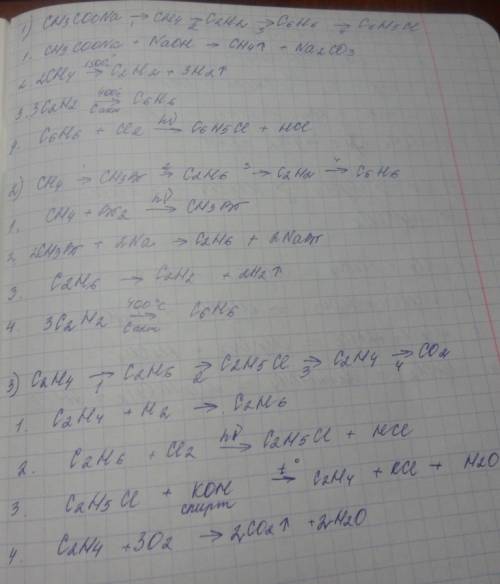 1) CH3COONa →1 CH4 →2 C2H2 →3 C6H6 →4 C6H5Cl
1. CH3COONa + NaOH → CH4↑ + Na2CO3
2. 2CH4 1500° → C2H2 + 3H2↑
3. 3C2H2 400° → Cакт C6H6
4. C6H6 + Cl2 hν → C6H5Cl + HCl
2) CH4 →1 CH3Br →2 C2H6 →3 C2H2 →4 C6H6
1. CH4 + Br2 hν → CH3Br
2. 2CH3Br + 2Na → C2H6 + 2NaBr
3. C2H6 → C2H2 + 2H2↑
4. 3C2H2 400°C → Cакт C6H6
3) C2H4 →1 C2H6 →2 C2H5Cl →3 C2H4 →4 CO2
1. C2H4 + H2 → C2H6
2. C2H6 + Cl2 hν → C2H5Cl + HCl
3. C2H5Cl + KOH спирт t° → C2H4 + KCl + H2O
4. C2H4 + 3O2 → 2CO2↑ + 2H2O